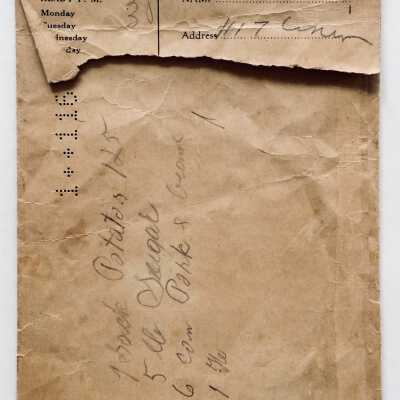 READY P. M.
Monday
Tuesday
nesday
day
Name
Address 417
1**116
1 sack Potatos 125
5 lb Sugar
6 can Pork & beans 1
1